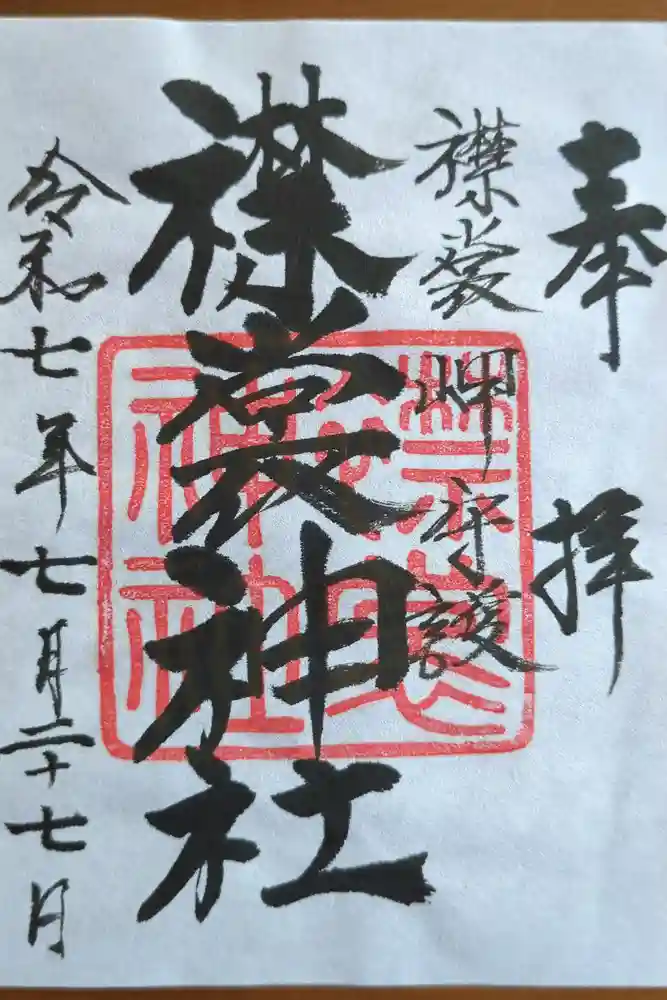 奉拝
襟裳岬守護
襟裳神社
襟裳
神社
令和七年七月二十七日